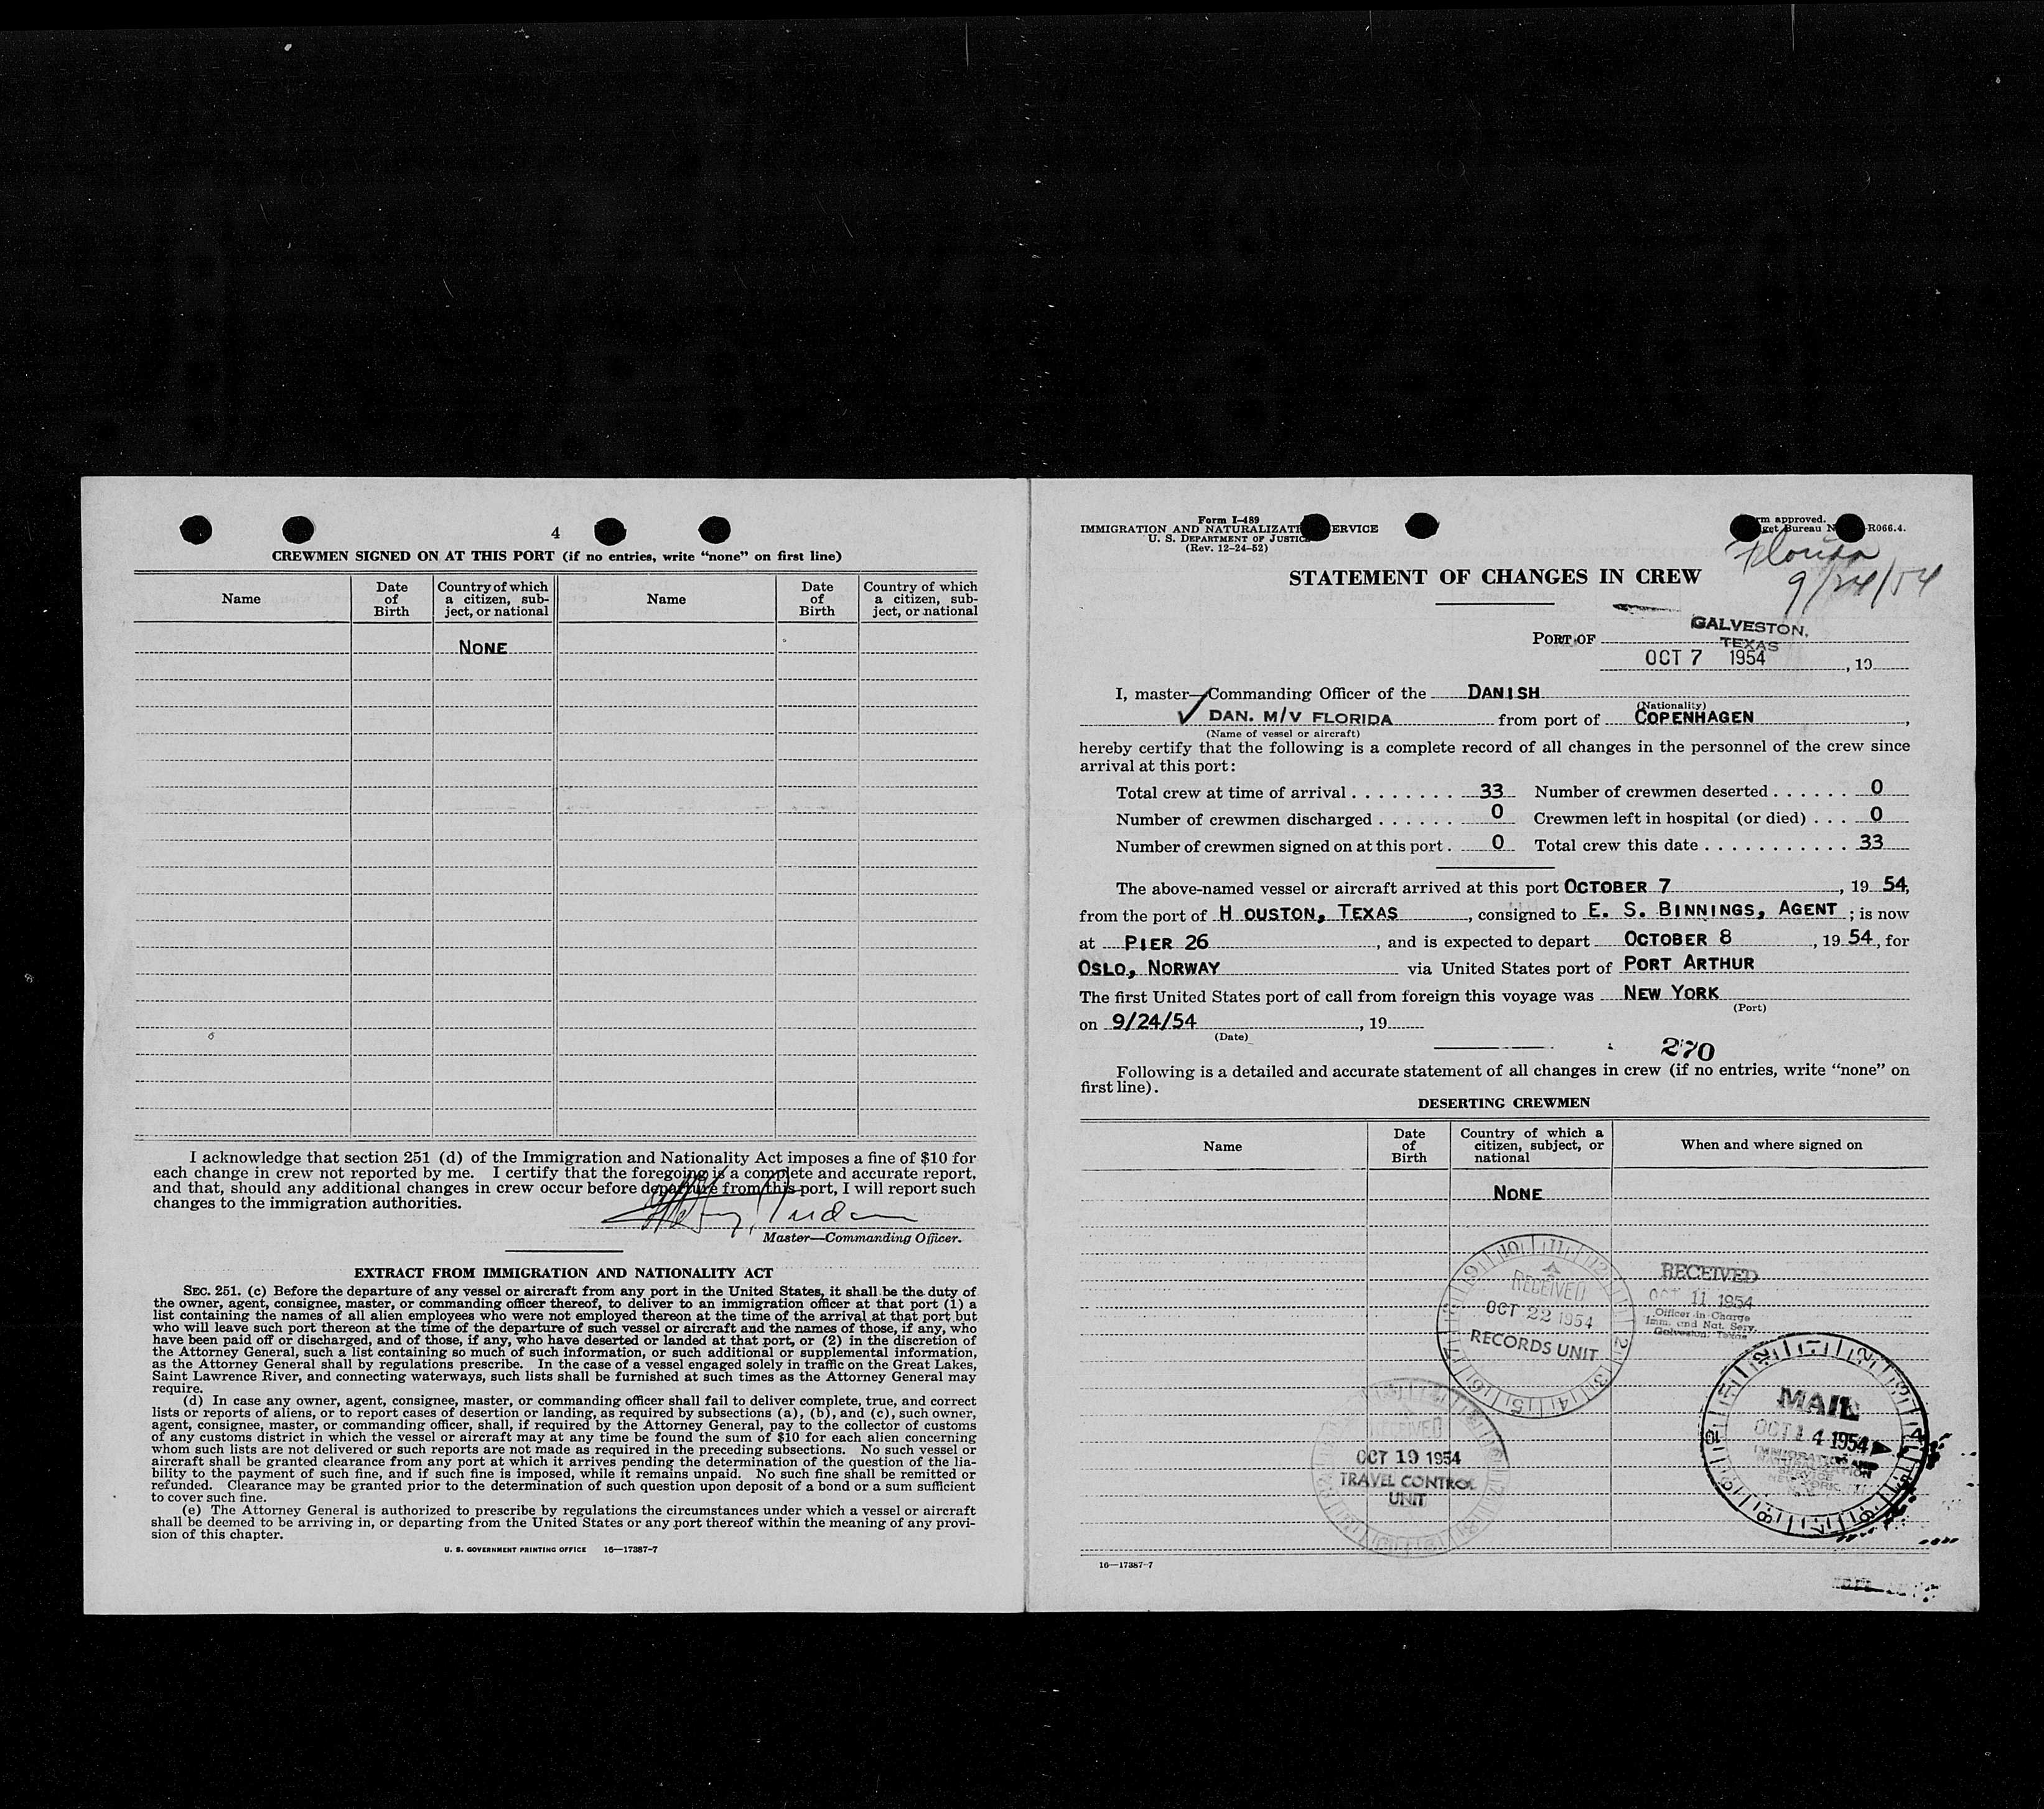 4
CREWMEN SIGNED ON AT THIS PORT (if no entries, write “none” on first line)
Name
Date of Birth
Country of which a citizen, subject, or national
Name
Date of Birth
Country of which a citizen, subject, or national
NONE
I acknowledge that section 251 (d) of the Immigration and Nationality Act imposes a fine of $10 for
each change in crew not reported by me. I certify that the foregoing is a complete and accurate report,
and that, should any additional changes in crew occur before departure from this port, I will report such
changes to the immigration authorities.
Master—Commanding Officer.
EXTRACT FROM IMMIGRATION AND NATIONALITY ACT
SEC. 251. (c) Before the departure of any vessel or aircraft from any port in the United States, it shall be the duty of
the owner, agent, consignee, master, or commanding officer thereof, to deliver to an immigration officer at that port (1) a
list containing the names of all alien employees who were not employed thereon at the time of the arrival at that port but
who will leave such port thereon at the time of the departure of such vessel or aircraft and the names of those, if any, who
have been paid off or discharged, and of those, if any, who have deserted or landed at that port, or (2) in the discretion of
the Attorney General, such a list containing so much of such information, or such additional or supplemental information,
as the Attorney General shall by regulations prescribe. In the case of a vessel engaged solely in traffic on the Great Lakes,
Saint Lawrence River, and connecting waterways, such lists shall be furnished at such times as the Attorney General may
require.
(d) In case any owner, agent, consignee, master, or commanding officer shall fail to deliver complete, true, and correct
lists or reports of aliens, or to report cases of desertion or landing, as required by subsections (a), (b), and (c), such owner,
agent, consignee, master, or commanding officer, shall, if required by the Attorney General, pay to the collector of customs
of any customs district in which the vessel or aircraft may at any time be found the sum of $10 for each alien concerning
whom such lists are not delivered or such reports are not made as required in the preceding subsections. No such vessel or
aircraft shall be granted clearance from any port at which it arrives pending the determination of the question of the lia-
bility to the payment of such fine, and if such fine is imposed, while it remains unpaid. No such fine shall be remitted or
refunded. Clearance may be granted prior to the determination of such question upon deposit of a bond or a sum sufficient
to cover such fine.
(e) The Attorney General is authorized to prescribe by regulations the circumstances under which a vessel or aircraft
shall be deemed to be arriving in, or departing from the United States or any port thereof within the meaning of any provi-
sion of this chapter.
U. S. GOVERNMENT PRINTING OFFICE 16—17387-7
Form I-489
IMMIGRATION AND NATURALIZATI ERVICE
U. S. DEPARTMENT OF JUSTIC
(Rev. 12-24-52)
rm approved.
get Bureau N R066.4.
Florida
9/24/54
STATEMENT OF CHANGES IN CREW
GALVESTON,
PORT OF TEXAS
OCT 7 1954, 19
I, master—Commanding Officer of the DANISH
(Nationality)
✓ DAN. M/V FLORIDA from port of COPENHAGEN,
(Name of vessel or aircraft)
hereby certify that the following is a complete record of all changes in the personnel of the crew since
arrival at this port:
Total crew at time of arrival 33 Number of crewmen deserted 0
Number of crewmen discharged 0 Crewmen left in hospital (or died) 0
Number of crewmen signed on at this port 0 Total crew this date 33
The above-named vessel or aircraft arrived at this port OCTOBER 7, 19 54,
from the port of H OUSTON, TEXAS, consigned to E. S. BINNINGS, AGENT; is now
at PIER 26, and is expected to depart OCTOBER 8, 19 54, for
OSLO, NORWAY via United States port of PORT ARTHUR
The first United States port of call from foreign this voyage was NEW YORK
(Port)
on 9/24/54, 19
(Date)
270
Following is a detailed and accurate statement of all changes in crew (if no entries, write “none” on
first line).
DESERTING CREWMEN
Name
Date of Birth
Country of which a citizen, subject, or national
When and where signed on
NONE
RECEIVED
OCT 22 1954
RECORDS UNIT
RECEIVED
OCT 11 1954
Officer in Charge
Imm. and Nat. Serv.
Galveston, Texas
RECEIVED
OCT 19 1954
TRAVEL CONTROL
UNIT
MAIL
OCT 14 1954
16—17387-7